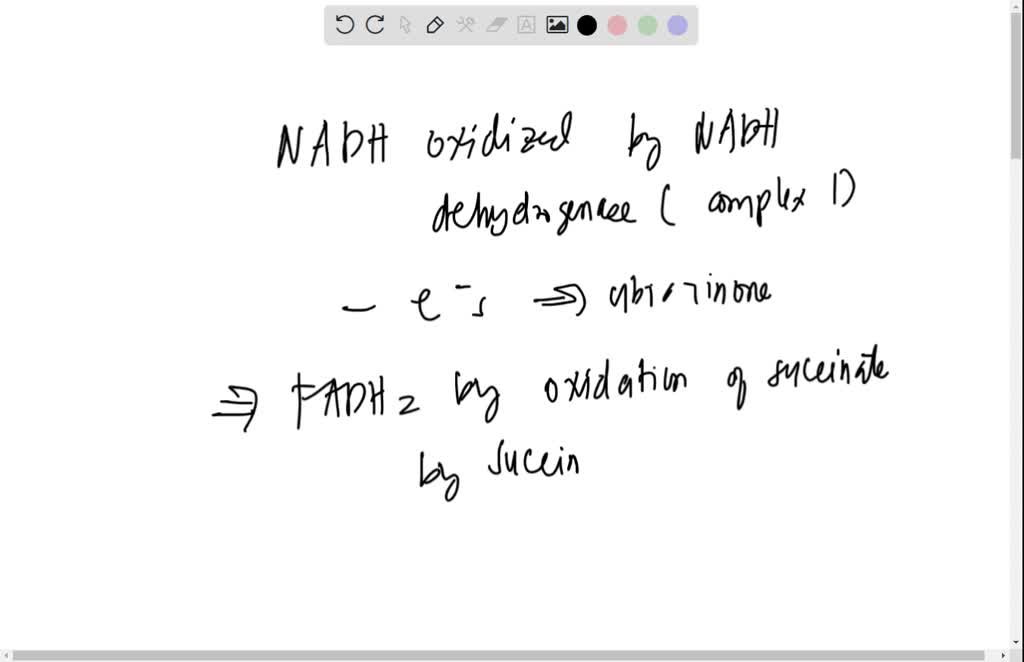 NADH oxidized by NADH
dehydrogenase ( complex 1)
– e⁻s ⇒
⇒ FADH2 by oxidation of succinate
by succin